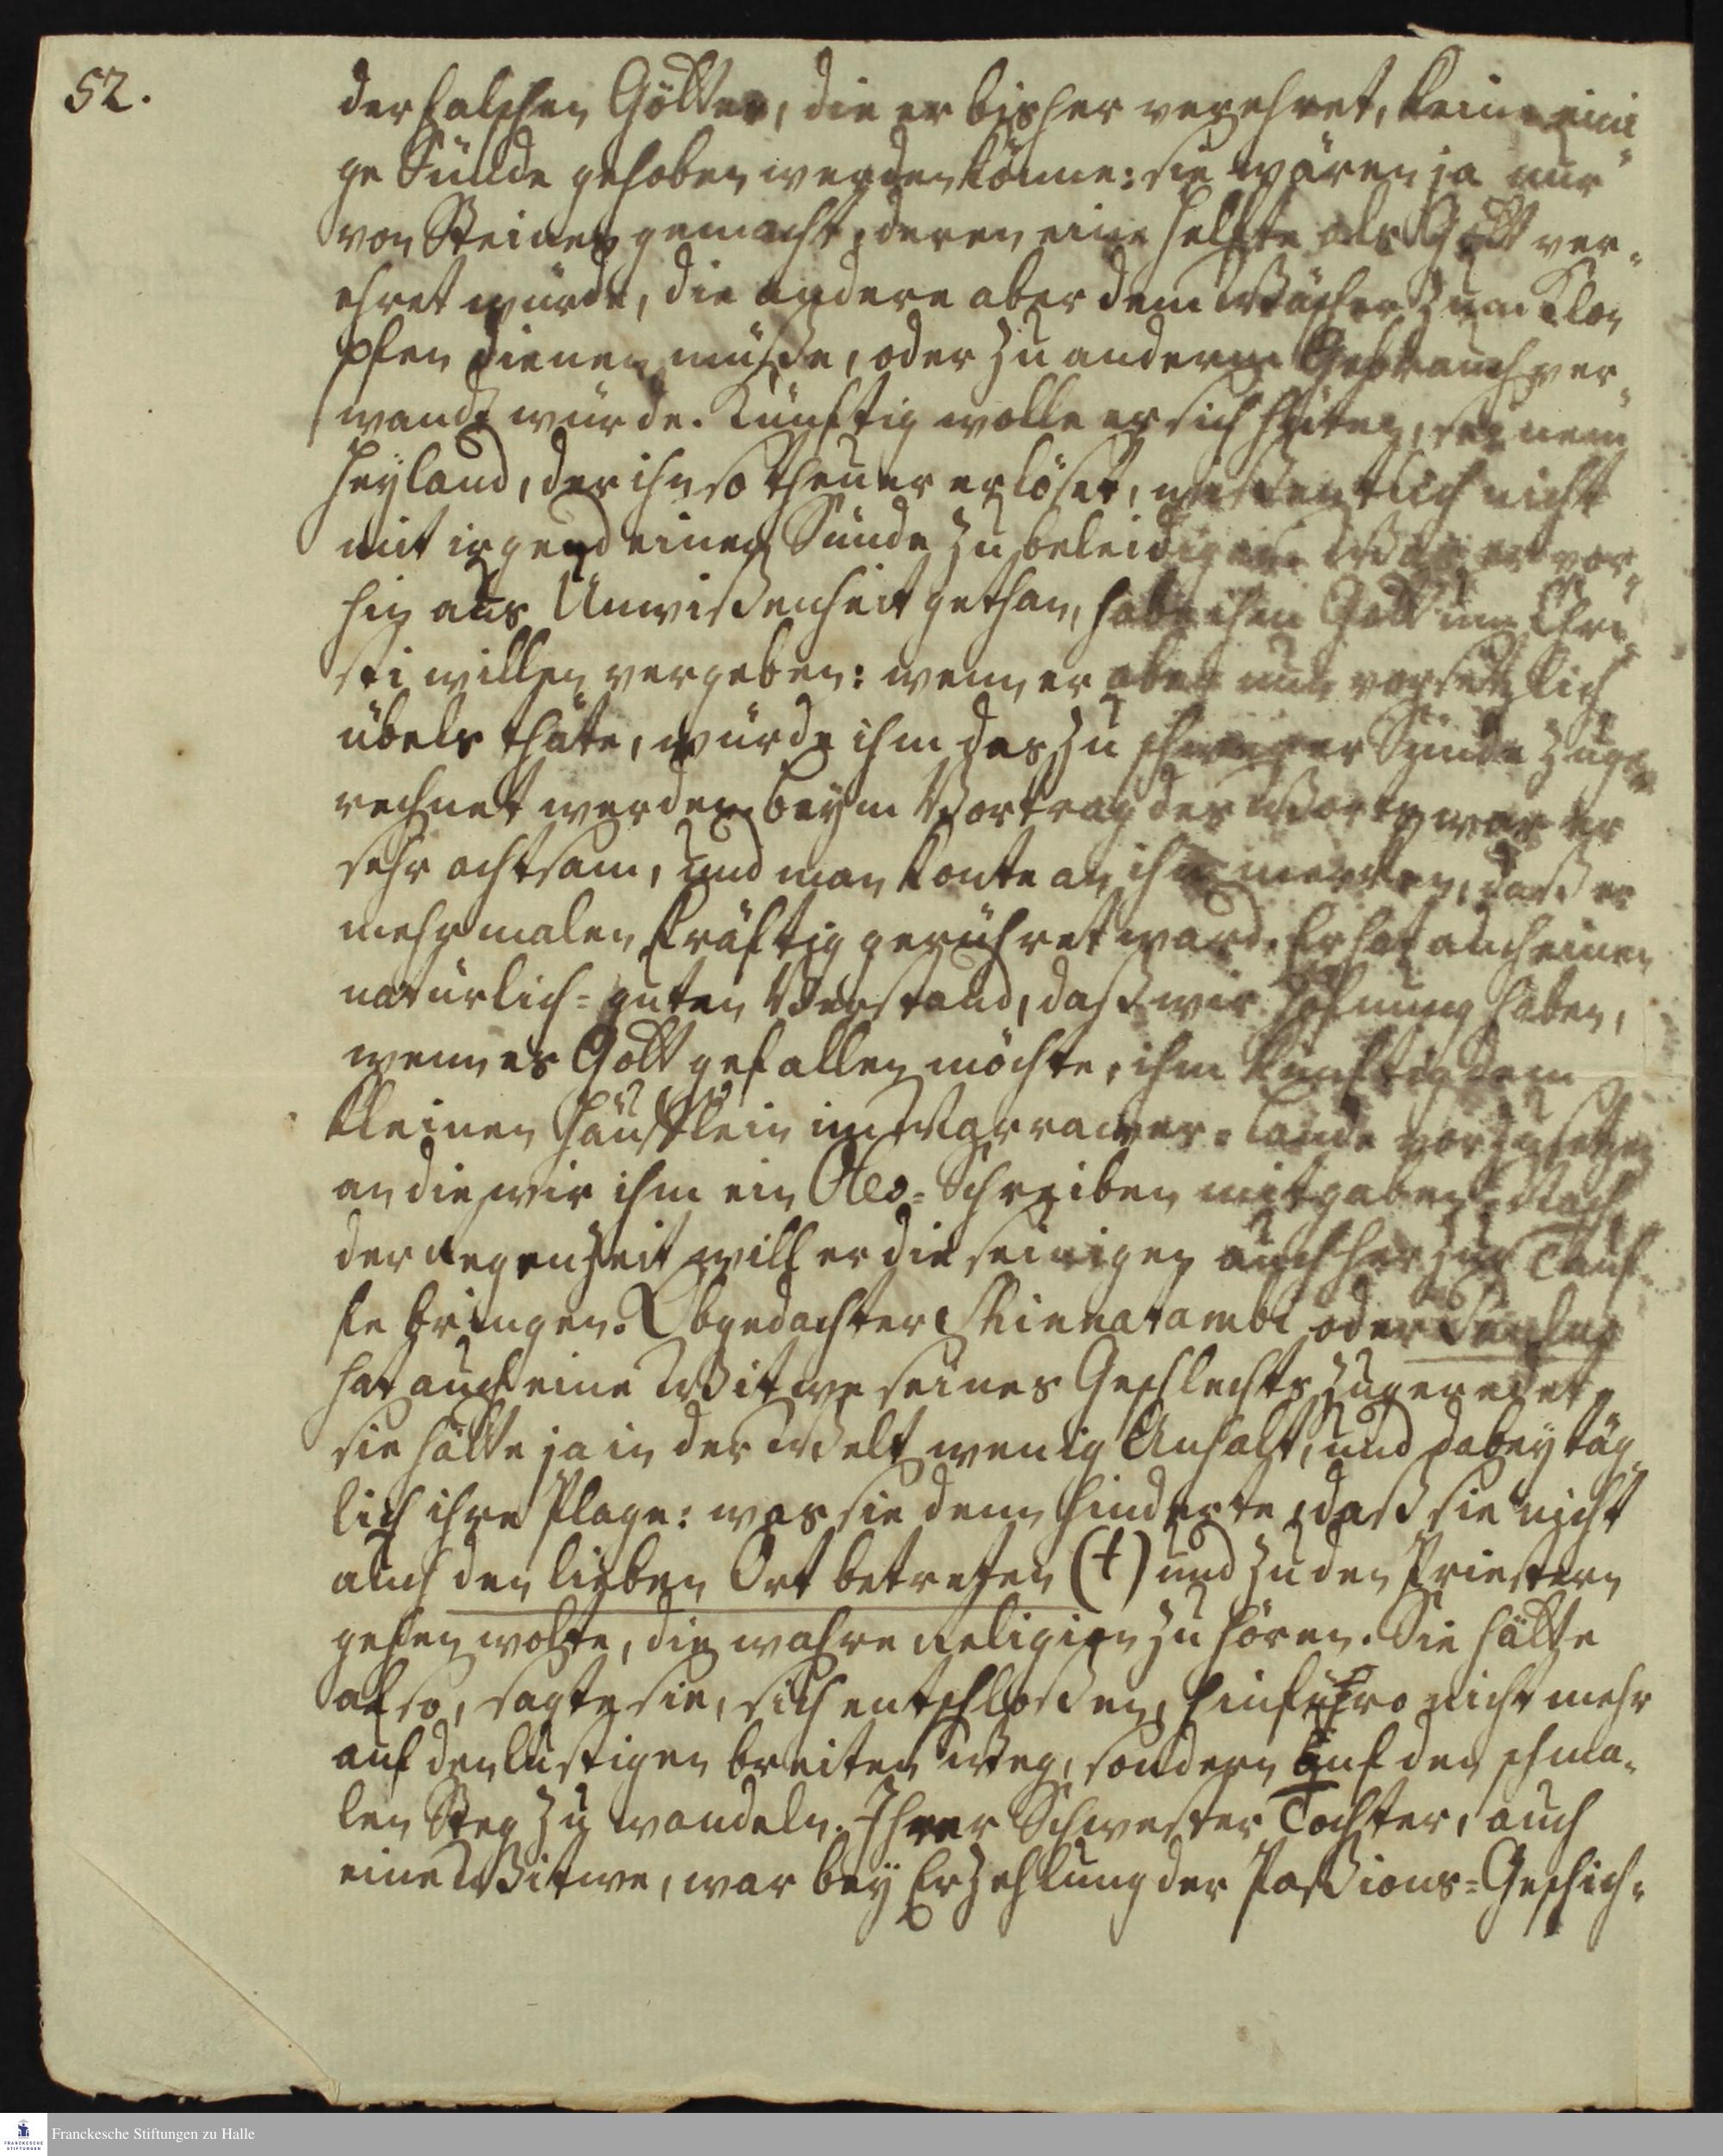 52.
der falschen Götter, die er bisher verehret, keine eini-
ge Sünde gehoben werden könne: sie wären ja nur
von Steinen gemacht, deren eine Helfte als Gott ver-
ehret würde, die andere aber dem Wäscher zum Klo-
pfen dienen müßte, oder zu anderm Gebrauch ver-
wandt würde. Künftig wolle er sich hüten, seinem
Heyland, der ihn so theuer erlöset, wissentlich nicht
mit irgend einer Sünde zu beleidigen. Was er vor-
hin aus Unwißenheit gethan, habe ihm Gott um Chri-
sti willen vergeben: wenn er aber nun vorsetzlich
übels thäte, würde ihm das zu schwerer Sünde zuge-
rechnet werden. Beym Vortrag des Worts war er
sehr achtsam, und man konte an ihm mercken, daß er
mehrmalen kräftig gerühret ward. Er hat auch einen
natürlich-guten Verstand, daß wir Hofnung haben,
wenn es Gott gefallen möchte, ihn künftig dem
kleinen Häufflein im Marrawer-Lande vorzusetzen
an die wir ihm ein Oles-Schreiben mitgaben. Nach
der Regenzeit will er die seinigen auch her zur Tauf-
fe bringen. Obgedachter Schinnatambi oder
hat auch eine Witwe seines Geschlechts zugeredet,
sie hätte ja in der Welt wenig Anhalt, und dabey täg-
lich ihre Plage: was sie denn hinderte, daß sie nicht
auch den lieben Ort betreten (†) und zu den Priestern
gehen wolte, die wahre Religion zu hören. Sie hätte
also, sagte sie, sich entschloßen, hinführo nicht mehr
auf den lustigen breiten Weg, sondern auf den schma-
len Steg zu wandeln. Ihrer Schwester Tochter, auch
eine Witwe, war bey Erzehlung der Paßions-Geschich-
Franckesche Stiftungen zu Halle